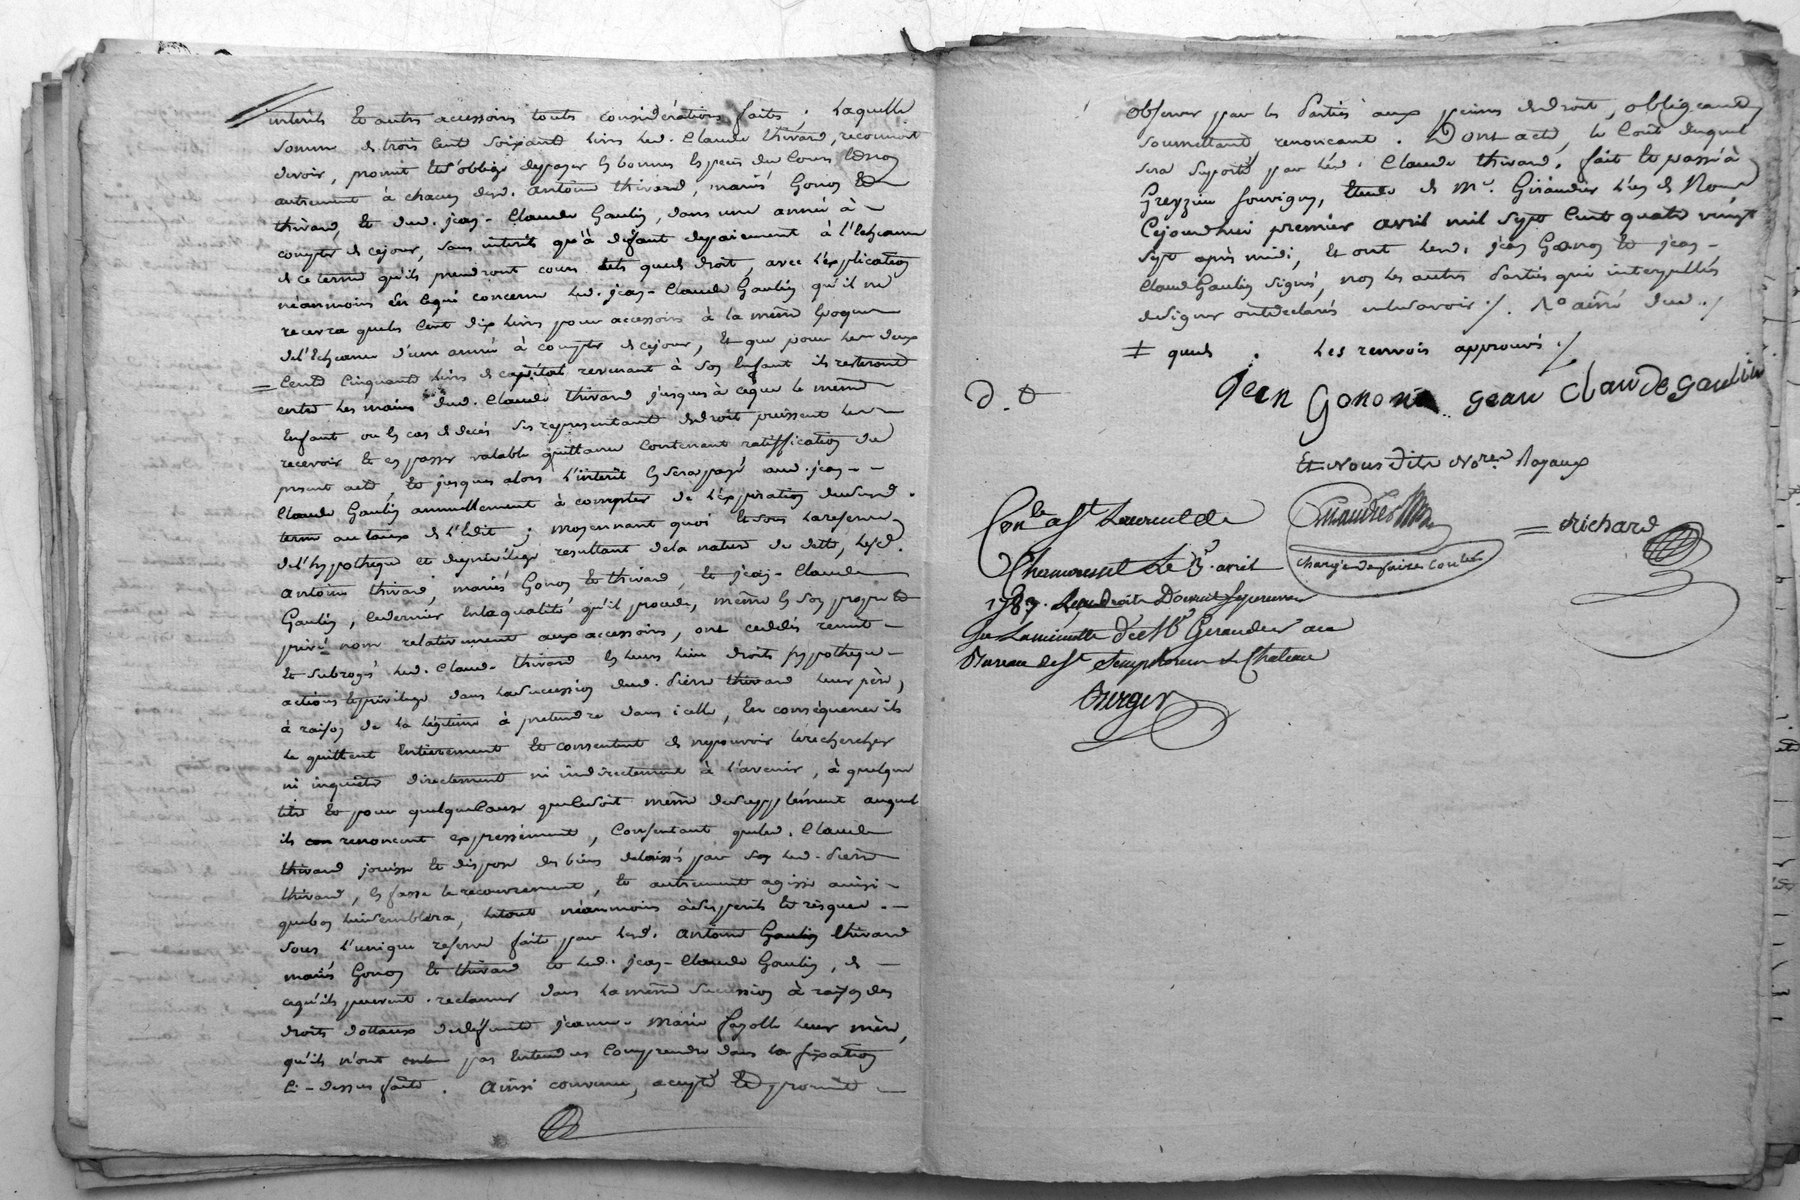 interets et autres accessoirs touts considérations faits ; laquelle
somme de trois cent soixante livres led. Claude thivard, reconnoit
devoir, promet et s'oblige de payer en bonnes espèces du cours et non
autrement à chacun desd. antoine thivard, mariés Gonon et
thivard, et dud. jean-Claude Gaulin, dans une année à
compter de cejour, sans interets qu'à défaut depaiement à l'echeance
de ce terme qu'ils prendront cours tels quels droit, avec l'explication
néanmoins en cequi concerne led. jean-Claude Gaulin qu'il ne
recevra quels cent dix livres pour accessoirs à la même époque
del'echeance d'une année à compter de cejour, et que pour les deux
cents cinquante livres de capital revenant à son enfant ils resteront
entre les mains dud. Claude thivard jusques à ceque le même
enfant ou en cas de decés ses representants dedroit puissent les
recevoir et en passer valable quittance contenant ratiffication du
present acte et jusques alors l'interêt en sera payé aud. jean-
Claude Gaulin annuellement à compter de l'expiration dudsusd.
terme au taux de l'Edit ; moyennant quoi et sous la reserve
del'hypotheque et deprivilege resultant dela nature de dette, lesd.
antoine thivard, mariés Gonon et thivard, et jean-Claude
Gaulin, cedernier enlaqualité qu'il procede, même en son propre et
privé nom relativement aux accessoirs, ont ceddés remit
et subrogés led. Claude thivard en leurs lieu droits hypotheque
actions et privilege dans la succession dud. Pierre thivard leur père,
à raison de la légitime à pretendre dans icelle, en conséquence ils
le quittent entierement et consentent de nepouvoir lerechercher
ni inquieter directement ni indirectement à l'avenir, à quelque
titre et pour quelquecause quecesoit même desupplément auquel
ils renoncent expressément, consentant queled. Claude
thivard jouisse et dispose des biens delaissés par son led. Pierre
thivard, en fasse le recouvrement, et autrement agisse ainsi
quebon luisemblera, letout néanmoins àsesperils et risques.
sous l'unique reserve faite par led. antoine Gaulin thivard
mariés Gonon et thivard et led. jean-Claude Gaulin, de
cequ'ils peuvent reclamer dans la même succession à raison des
droits dottaux dedéfunte jeanne-Marie fayolle leur mère,
qu'ils n'ont entendu pas entendus comprendre dans la fixation
ci-dessus faite. Ainsi convenu, accepté et promit
observer par les Parties aux peines dedroit, obligeant
soumettant renonçant. Dont acte, le cout duquel
sera suporté par led. Claude thivard, fait et passé à
Greyzieu souvigny, etude de Me. Girandier l'un de Nous
Cejourdhui premier avril mil sept cent quatre vingt
sept après midi, et ont led. jean Gonon et jean-
Claude Gaulin signés, non les autres Parties qui interpellés
designer ontdeclarés nelesavoir ./. No ainé dud. /
≠ quels . les renvois approuvés ./
D. D
jean Gonon jean Claude gaulin
Et Nous dits Nores Royaux
Conle a St Laurent de
Chamousset Le 3 avril
1787. Les droits Dovent se percevoir
Sur La minutte de Me Girandier au
Bureau de St Simphorien Le Chateau
Berger
Girandier
chargé de faire controler
= Richard